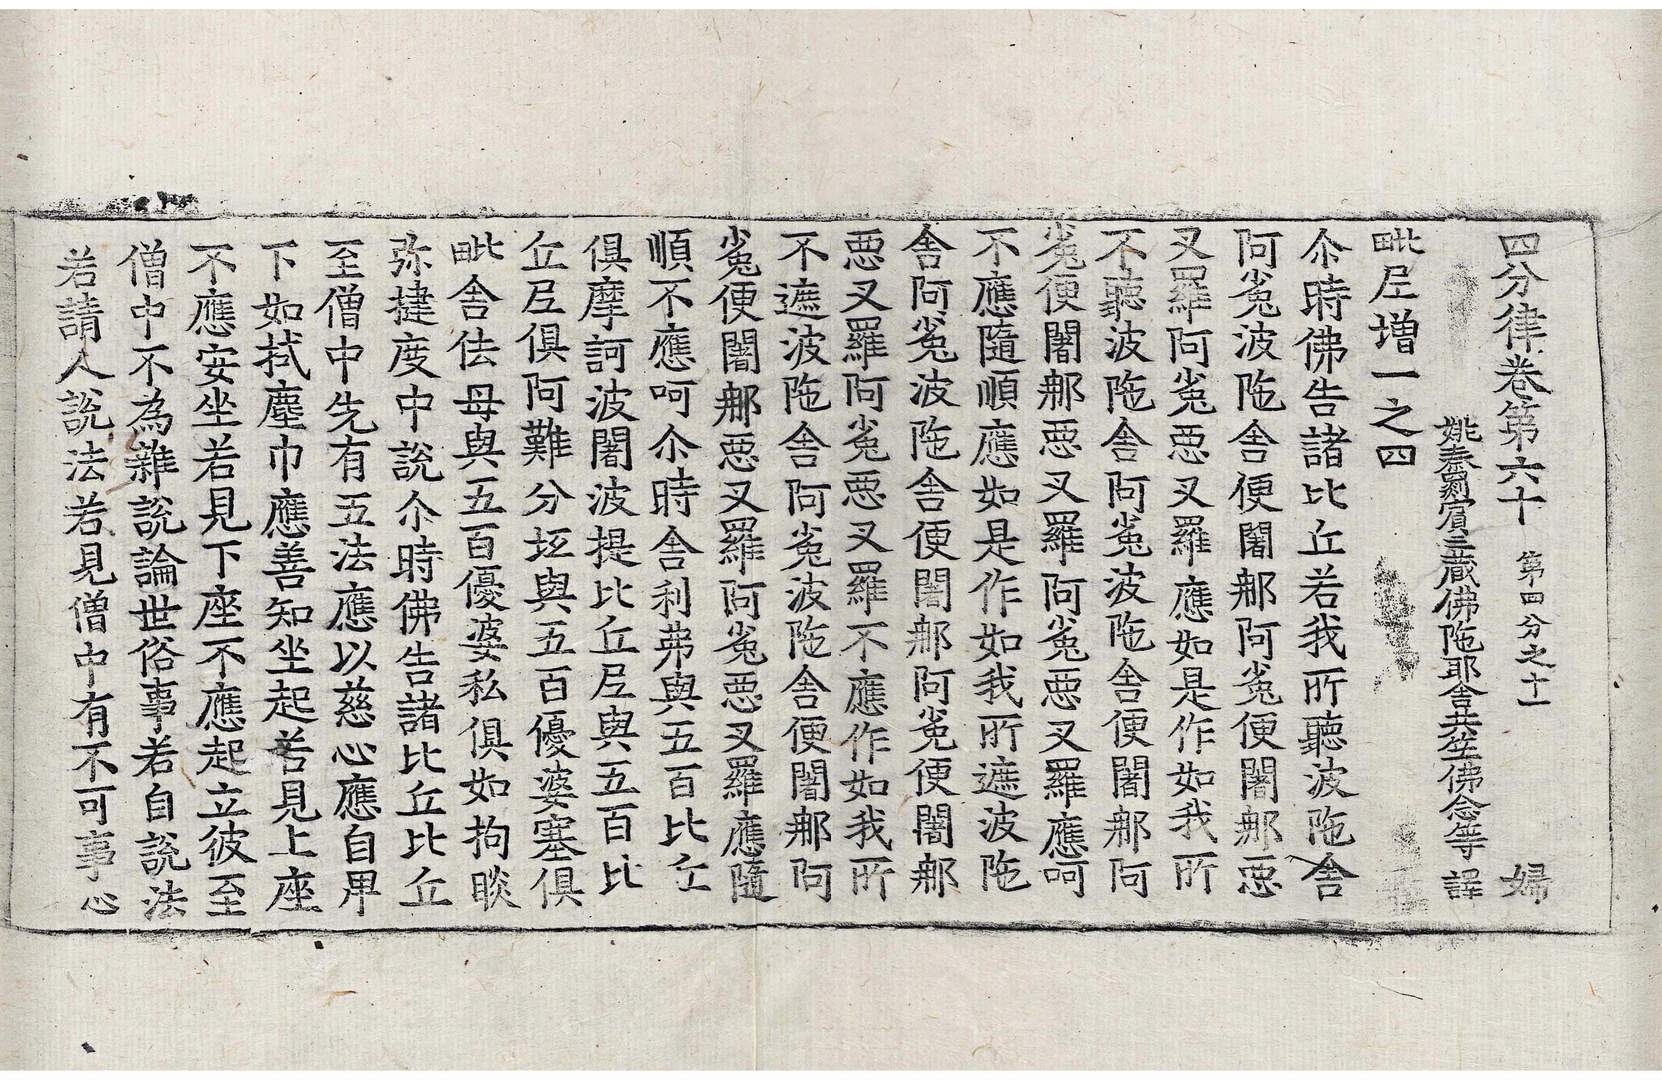 四分律卷第六十 第四分之十一 婦
姚秦罽賓三藏佛陁耶舍共竺佛念等 譯
毗尼增一之四
尒時佛告諸比丘若我所聽波陁舍
阿㝹波陁舍便闍那阿㝹便闍那惡
叉羅阿㝹惡叉羅應如是作如我所
不聽波陁舍阿㝹波陁舍便闍那阿
㝹便闍那惡叉羅阿㝹惡叉羅應呵
不應隨順應如是作如我所遮波陁
舍阿㝹波陁舍便闍那阿㝹便闍那
惡叉羅阿㝹惡叉羅不應作如我所
不遮波陁舍阿㝹波陁舍便闍那阿
㝹便闍那惡叉羅阿㝹惡叉羅應隨
順不應呵尒時舍利弗與五百比丘
俱摩訶波闍波提比丘尼與五百比
丘尼俱阿難分坻與五百優婆塞俱
毗舍佉母與五百優婆私俱如拘睒
弥揵度中說尒時佛告諸比丘比丘
至僧中先有五法應以慈心應自卑
下如拭塵巾應善知坐起若見上座
不應安坐若見下座不應起立彼至
僧中不為雜說論世俗事若自說法
若請人說法若見僧中有不可事心